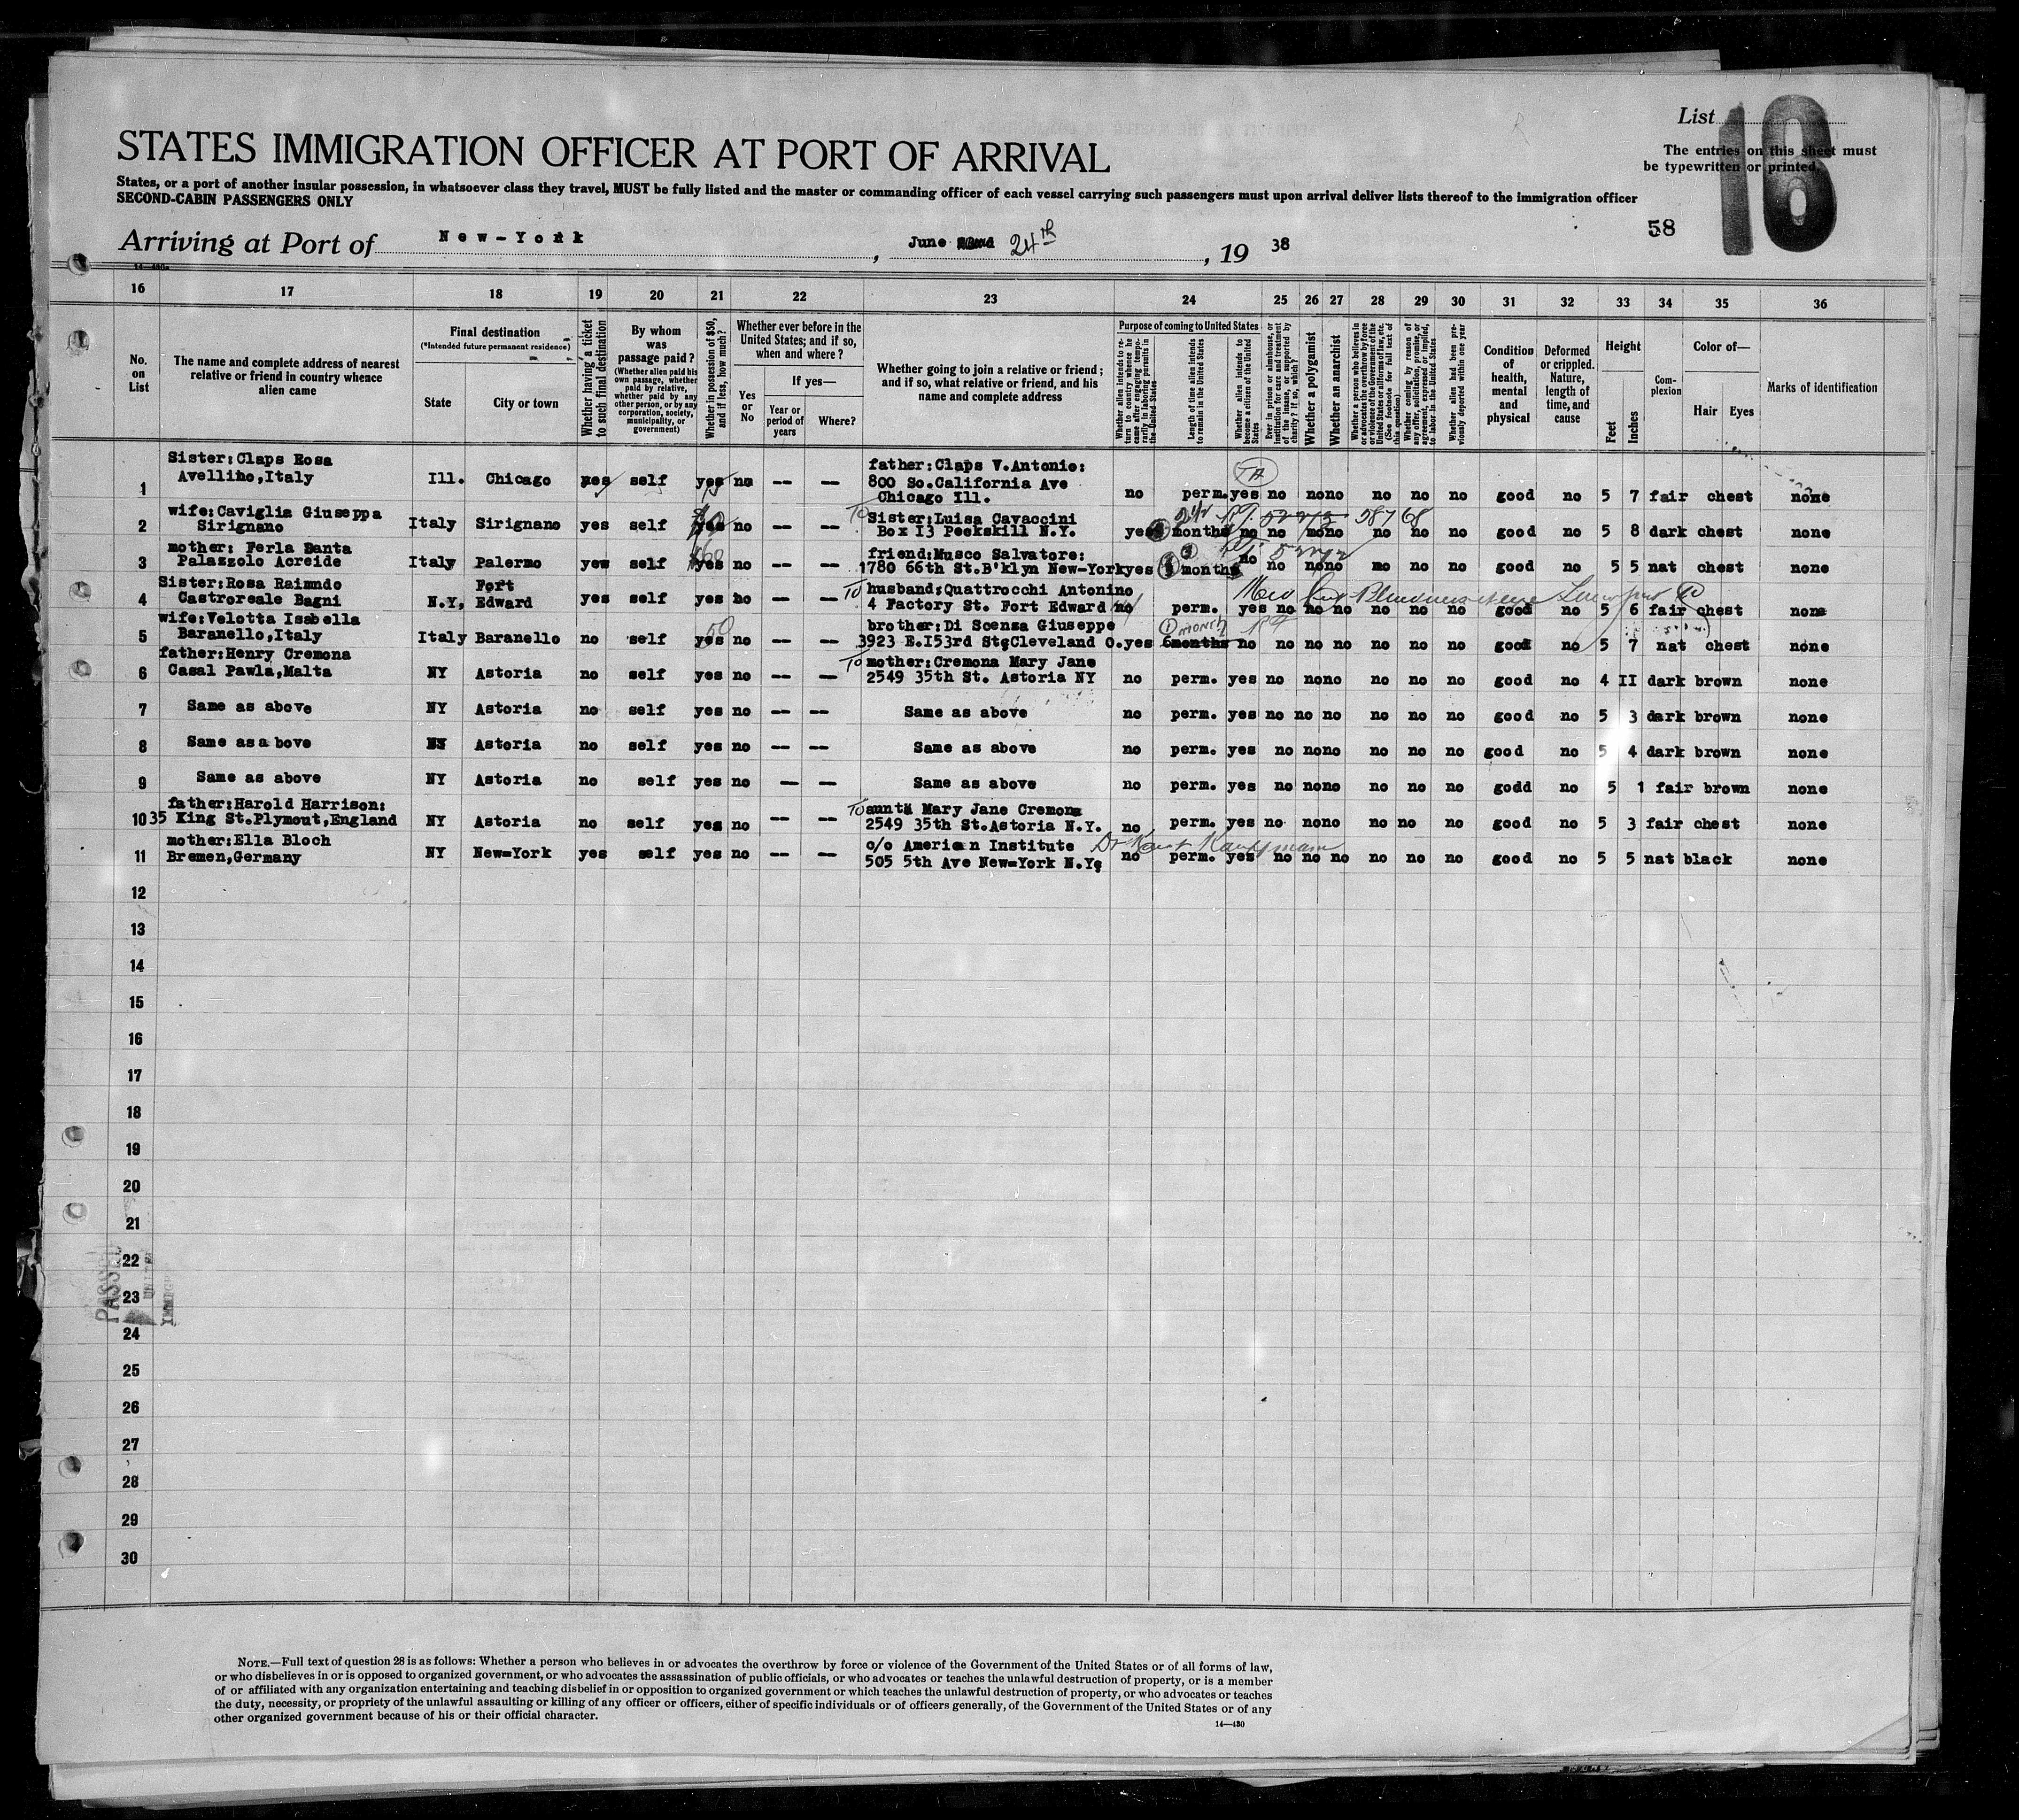 List 18
STATES IMMIGRATION OFFICER AT PORT OF ARRIVAL
The entries on this sheet must
be typewritten or printed.
States, or a port of another insular possession, in whatsoever class they travel, MUST be fully listed and the master or commanding officer of each vessel carrying such passengers must upon arrival deliver lists thereof to the immigration officer
SECOND-CABIN PASSENGERS ONLY
58
Arriving at Port of New-York, June 24th, 19 38
16 17 18 19 20 21 22 23 24 25 26 27 28 29 30 31 32 33 34 35 36
No. on List
The name and complete address of nearest relative or friend in country whence alien came
Final destination
(*Intended future permanent residence)
State
City or town
Whether having a ticket to such final destination
By whom was passage paid?
(Whether alien paid his own passage, whether paid by relative, whether paid by any other person, or by any corporation, society, municipality, or government)
Whether in possession of $50, and if less, how much?
Whether ever before in the United States; and if so, when and where?
Yes or No
If yes—
Year or period of years
Where?
Whether going to join a relative or friend; and if so, what relative or friend, and his name and complete address
Purpose of coming to United States
Whether alien intends to return to country whence he came after engaging temporarily in laboring pursuits in the United States
Length of time alien intends to remain in the United States
Whether alien intends to become a citizen of the United States
Ever in prison or almshouse, or institution for care and treatment of the insane, or supported by charity? If so, which?
Whether a polygamist
Whether an anarchist
Whether a person who believes in or advocates the overthrow by force or violence of the Government of the United States or all forms of law, etc. (See footnote for full text of this question)
Whether coming by reason of any offer, solicitation, promise, or agreement, expressed or implied, to labor in the United States
Whether alien had been previously deported within one year
Condition of health, mental and physical
Deformed or crippled. Nature, length of time, and cause
Height
Feet
Inches
Complexion
Color of—
Hair Eyes
Marks of identification
Sister:Claps Rosa father:Claps V.Antonio: TA
Avellino,Italy Ill. Chicago yes self yes no -- -- 800 So.California Ave
1 Chicago Ill. no perm. yes no nono no no no good no 5 7 fair chest none
wife:Caviglia Giuseppa To Sister:Luisa Cavaccini
2 Sirignano Italy Sirignano yes self yes no -- -- Box I3 Peekskill N.Y. yes months no no nono no no no good no 5 8 dark chest none
mother: Ferla Santa friend:Musco Salvatore:
3 Palazzolo Acreide Italy Palermo yes self yes no -- -- 1780 66th St.B'klyn New-York yes months no no nono no no no good no 5 5 nat chest none
Sister:Rosa Raimndo Fort To husband:Quattrocchi Antonino
4 Castroreale Bagni N.Y, Edward yes self yes no -- -- 4 Factory St. Fort Edward no perm. yes no no no no no no good no 5 6 fair chest none
wife:Velotta Isabella 50 brother:Di Scenza Giuseppe 1 month
5 Baranello,Italy Italy Baranello no self yes no -- -- 3923 E.I53rd St.Cleveland O. yes 6months no no no no no no no good no 5 7 nat chest none
father:Henry Cremona To mother:Cremona Mary Jane
6 Casal Pawla,Malta NY Astoria no self yes no -- -- 2549 35th St. Astoria NY no perm. yes no nono no no no good no 4 II dark brown none
7 Same as above NY Astoria no self yes no -- -- Same as above no perm. yes no no no no no no good no 5 3 dark brown none
8 Same asa bove NY Astoria no self yes no -- -- Same as above no perm. yes no nono no no no good no 5 4 dark brown none
9 Same as above NY Astoria no self yes no -- -- Same as above no perm. yes no nono no no no godd no 5 1 fair brown none
father:Harold Harrison: To aunt: Mary Jane Cremona
10 35 King St.Plymout,England NY Astoria no self yes no -- -- 2549 35th St.Astoria N.Y. no perm. yes no nono no no no good no 5 3 fair chest none
mother:Ella Bloch c/o American Institute
11 Bremen,Germany NY New=York yes self yes no -- -- 505 5th Ave New=York N.Y. no perm. yes no no no no no no good no 5 5 nat black none
12
13
14
15
16
17
18
19
20
21
22
23
24
25
26
27
28
29
30
PASSED
NOTE.—Full text of question 28 is as follows: Whether a person who believes in or advocates the overthrow by force or violence of the Government of the United States or of all forms of law,
or who disbelieves in or is opposed to organized government, or who advocates the assassination of public officials, or who advocates or teaches the unlawful destruction of property, or is a member
of or affiliated with any organization entertaining and teaching disbelief in or opposition to organized government or which teaches the unlawful destruction of property, or who advocates or teaches
the duty, necessity, or propriety of the unlawful assaulting or killing of any officer or officers, either of specific individuals or of officers generally, of the Government of the United States or of any
other organized government because of his or their official character.
14—430